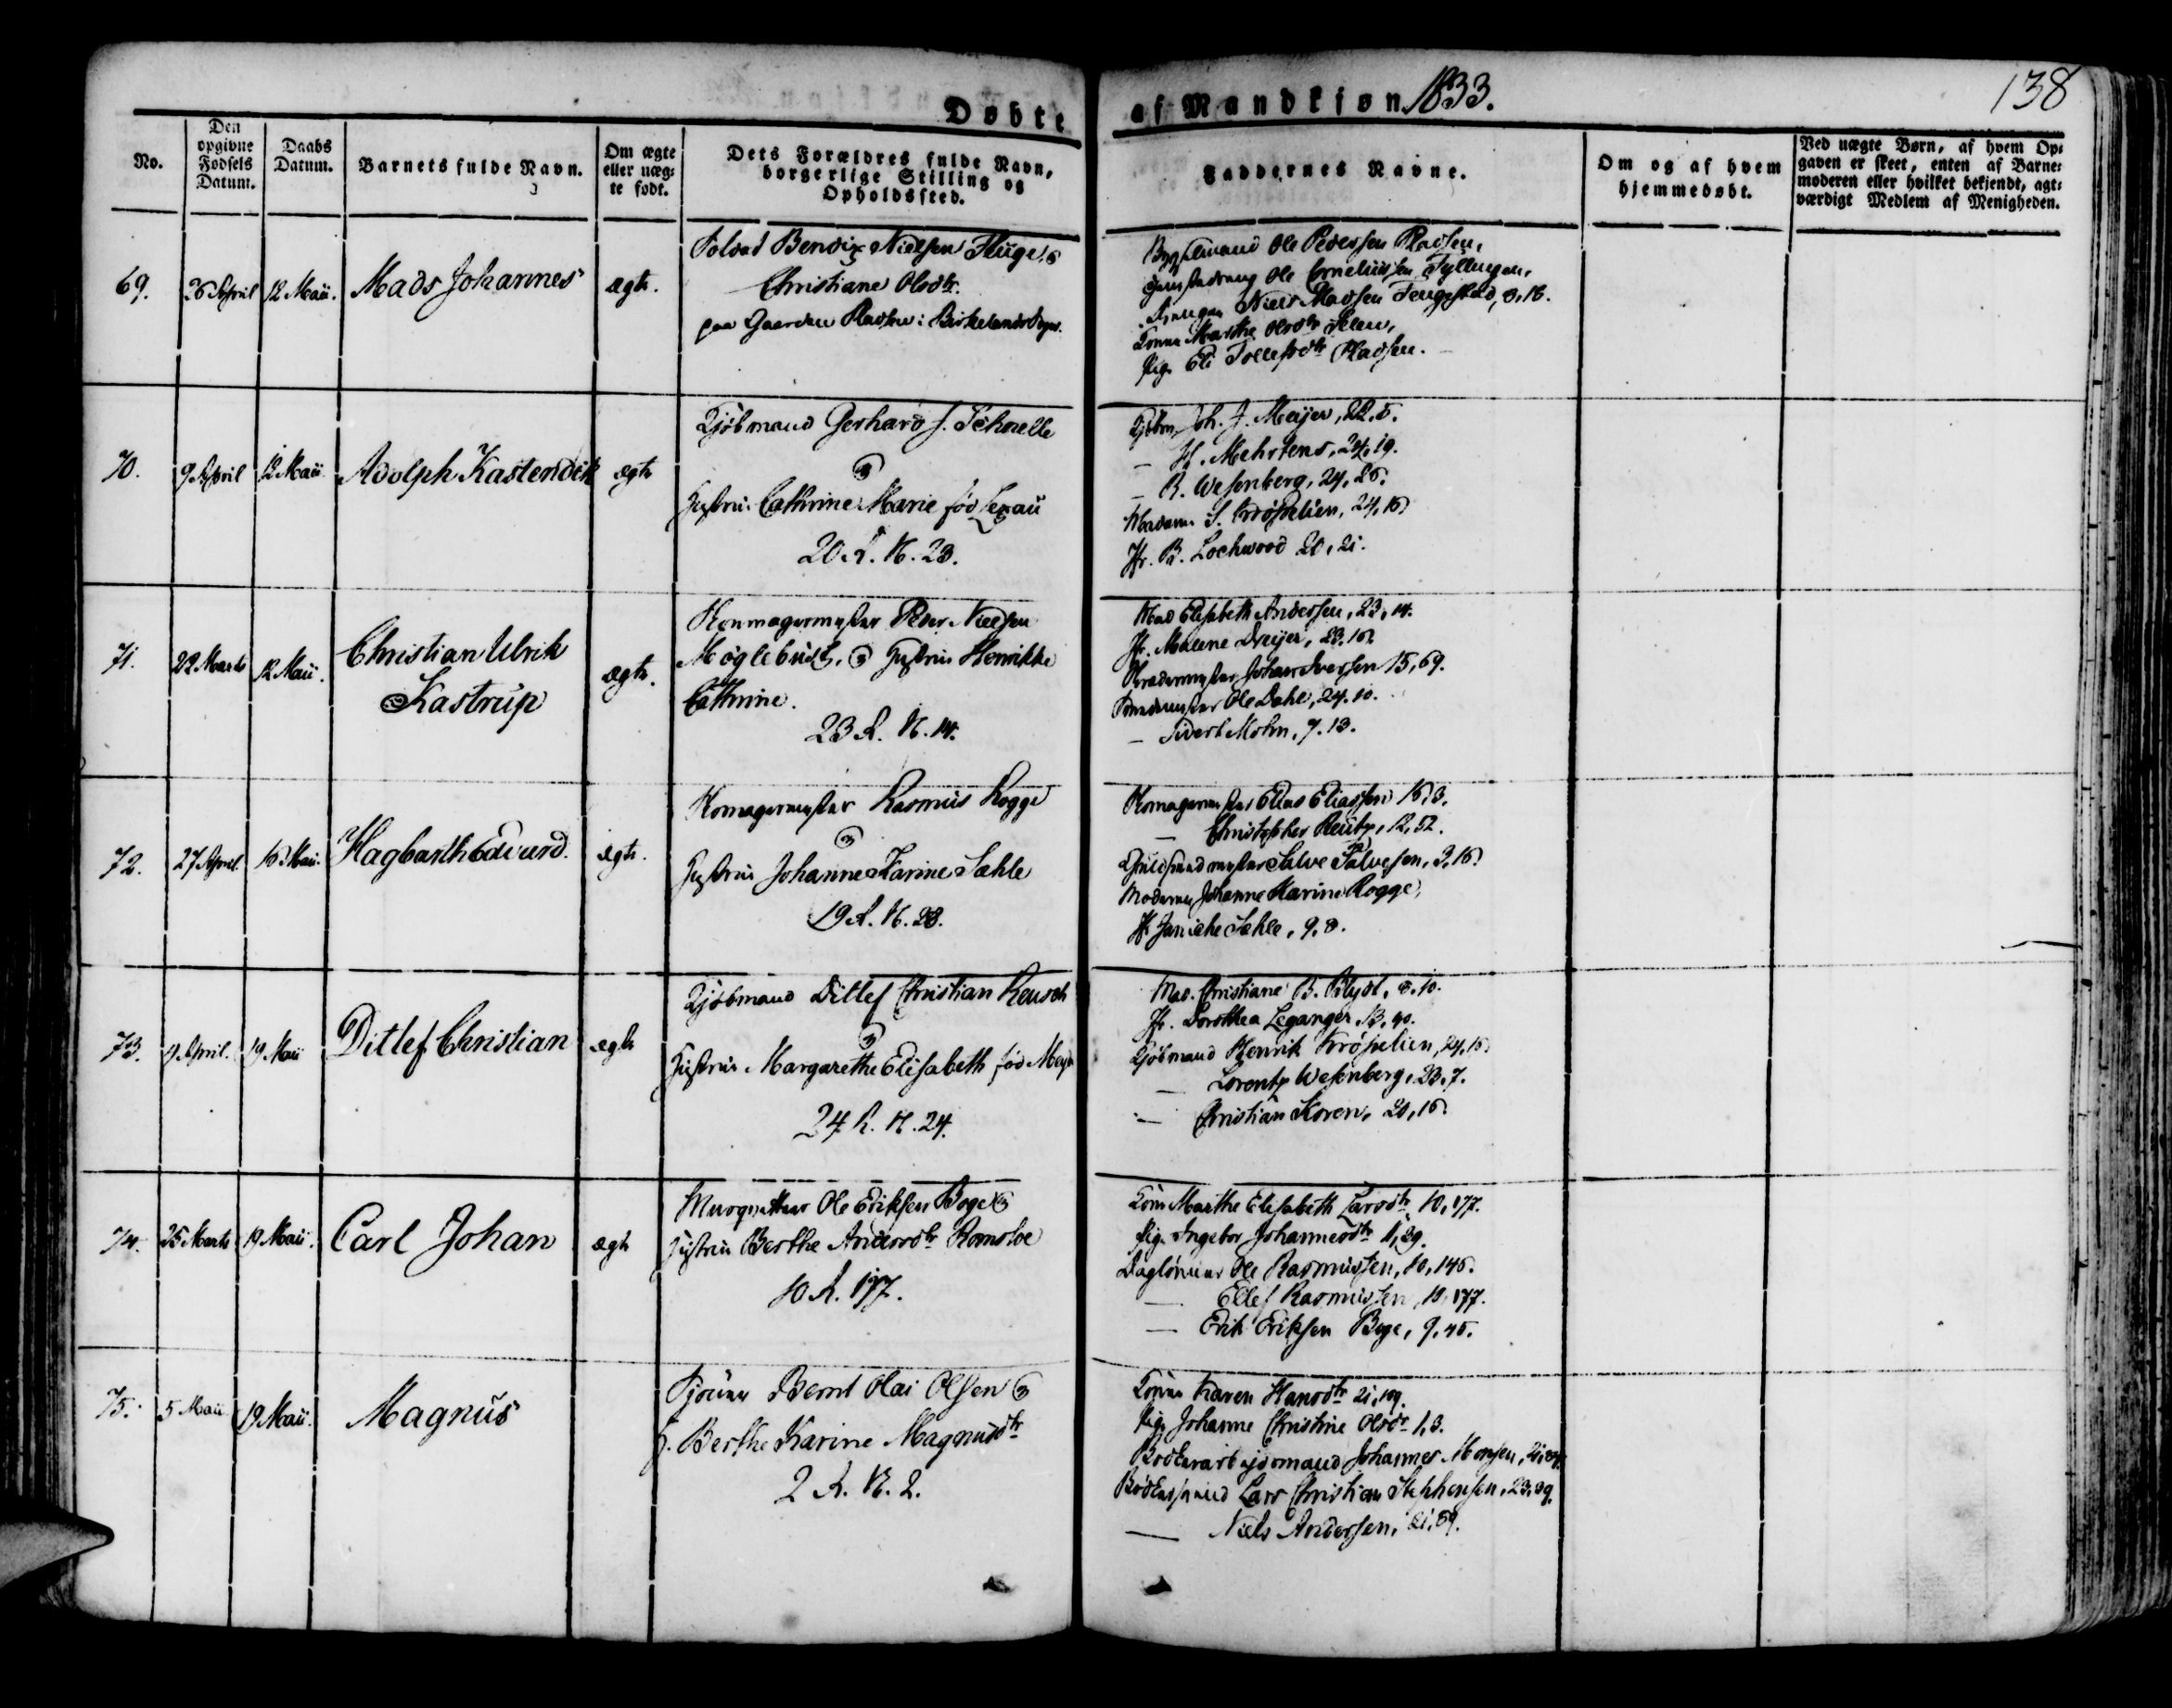 Døbte af Mandkjøn 1833.
138
No.
Den opgivne Fødsels Datum.
Daabs Datum.
Barnets fulde Navn.
Om ægte eller uæg-te født.
Dets Forældres fulde Navn, borgerlige Stilling og Opholdssted.
Faddernes Navne.
Om og af hvem hjemmedøbt.
Ved uægte Børn, af hvem Op-
gaven er skeet, enten af Barne-
moderen eller hvilket bekjendt, agt-
værdigt Medlem af Menigheden.
69. 26 April 12 Maii. Mads Johannes ægte.
Soldat Bendix Nielsen
Christiane Olsdtr.
paa Gaarden i Birkelands
Ole Pedersen Pladsen,
Ole Corneliussen
Niels Madsen
Kone Marthe Olsdtr
Pige Eli Pladsen.
70. 9 April 12 Maii Adolph Kastendik ægte
Kjöbmand Gerhard J. Schnelle
og
Hustrue Cathrine Marie fød
20 R. N. 23.
Kjöbm. Joh. J. Meijer, 22.5.
— H. Mehrtens, 24, 19.
— R. Wesenberg, 24, 26.
Madam S. Krøpelien, 24, 16
Jfr. B. Lochwood 20, 21.
71. 22 Marts 12 Maii. Christian Ulrik
Kastrup ægte.
Peder Nielsen
Møglebust, og Hustrue Henrikke
Cathrine.
23 R. N. 14.
Mad Elisabeth Andersen, 23, 14.
Jfr. Malene Dreijer, 23, 16
Johan Iversen 15, 69.
Ole Dahl, 24. 10.
— Sivert Mohn, 7. 13.
72. 27 April 16 Maii. Hagbarth Edvard. ægte.
Rasmus Rogge
og
Hustrue Johanne Karine Sahle
19 R. N. 28.
Elias Eliassen 16, 3.
— Christopher Reutz, 12, 52.
Salve Salvesen, 3, 16
Moderen Johanne Karine Rogge,
Jfr Janiche Sahle, 9. 8.
73. 9 April. 19 Maii Ditlef Christian ægte
Kjöbmand Ditlef Christian Reusch
og
Hustrue Margarethe Elisabeth fød
24 R. N. 24.
Mad. Christiane B. Blydt, 8. 10.
Jfr. Dorothea Leganger 13, 40.
Kjöbmand Henrik Krøpelien, 24, 16
— Lorentz Wesenberg, 23, 7.
— Christian Koren, 20, 16
74. 25 Marts 19 Maii. Carl Johan ægte
Ole Eriksen Boge og
Hustrue Berthe Andersdtr
10 R. 177.
Kone Marthe Elisabeth Larsdtr, 10, 177.
Pige Ingebor Johannesdtr 11, 29.
Dagløhner Ole Rasmussen, 10, 146.
— Ellef Rasmussen, 10, 177.
— Erik Eriksen Boge, 9. 45.
75. 5 Maii 19 Maii. Magnus
Bernt Olai Olsen og
H. Berthe Karine Magnusdtr
2 R. N. 2.
Kone Karen Hansdtr 21, 109.
Pige Johanne Christine Olsdr 1, 3.
Johannes Monsen,
Lars Christian Stephensen, 23, 39.
— Niels Andersen, 21, 59.